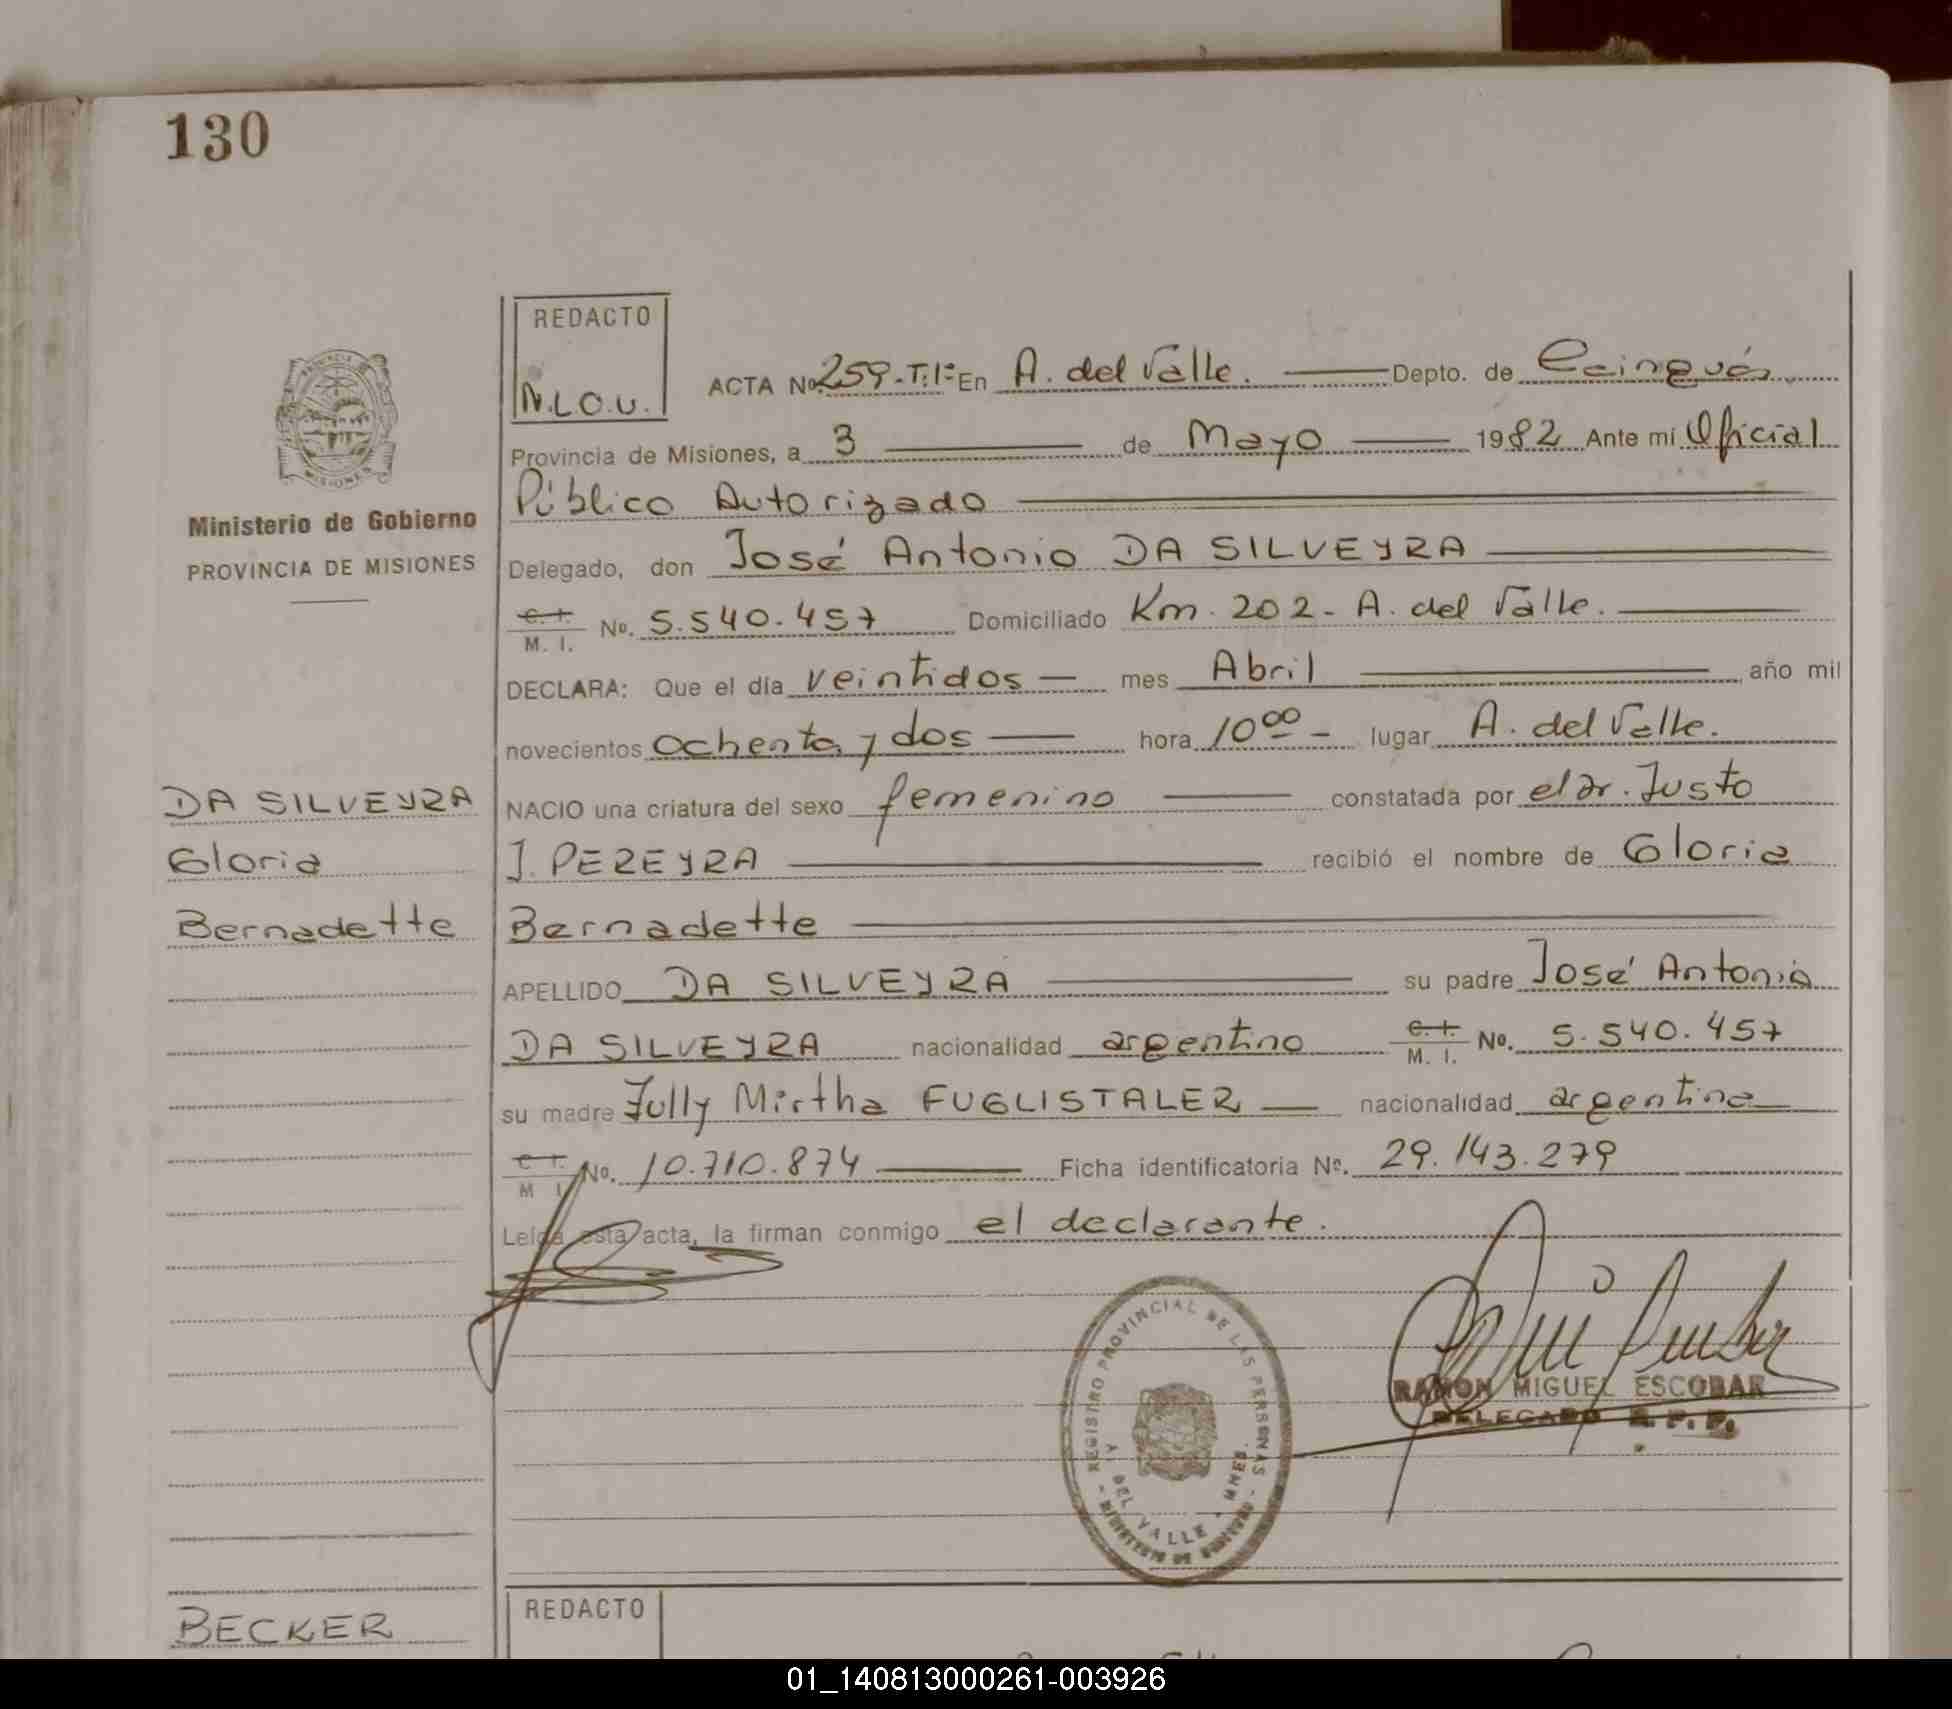 130
REDACTO
N.L.O.U.
ACTA No. 259-T.1º En A. del Valle. Depto. de Cainguás
Provincia de Misiones, a 3 de Mayo 1982 Ante mi Oficial
Público Autorizado
Delegado, don José Antonio DA SILVEYRA
C. I. M. I. No. 5.540.457 Domiciliado Km. 202 - A. del Valle.
DECLARA: Que el día veintidos mes Abril año mil
novecientos ochenta y dos hora 10 00 lugar A. del Valle.
NACIO una criatura del sexo femenino constatada por el Dr. Justo
J. PEREYRA recibió el nombre de Gloria
Bernadette
APELLIDO DA SILVEYRA su padre José Antonio
DA SILVEYRA nacionalidad argentino C. I. M. I. No. 5.540.457
su madre Jully Mirtha FUGLISTALER nacionalidad argentina
C. I. M. I. No. 10.710.874 Ficha identificatoria Nº. 29.143.279
Leída esta acta, la firman conmigo el declarante.
PROVINCIA MISIONES
Ministerio de Gobierno
PROVINCIA DE MISIONES
DA SILVEYRA
Gloria
Bernadette
REGISTRO PROVINCIAL DE LAS PERSONAS
A DEL VALLE - MNES.
MINISTERIO DE GOBIERNO
RAMON MIGUEL ESCOBAR
DELEGADO R. P. P.
BECKER
REDACTO
01_140813000261-003926